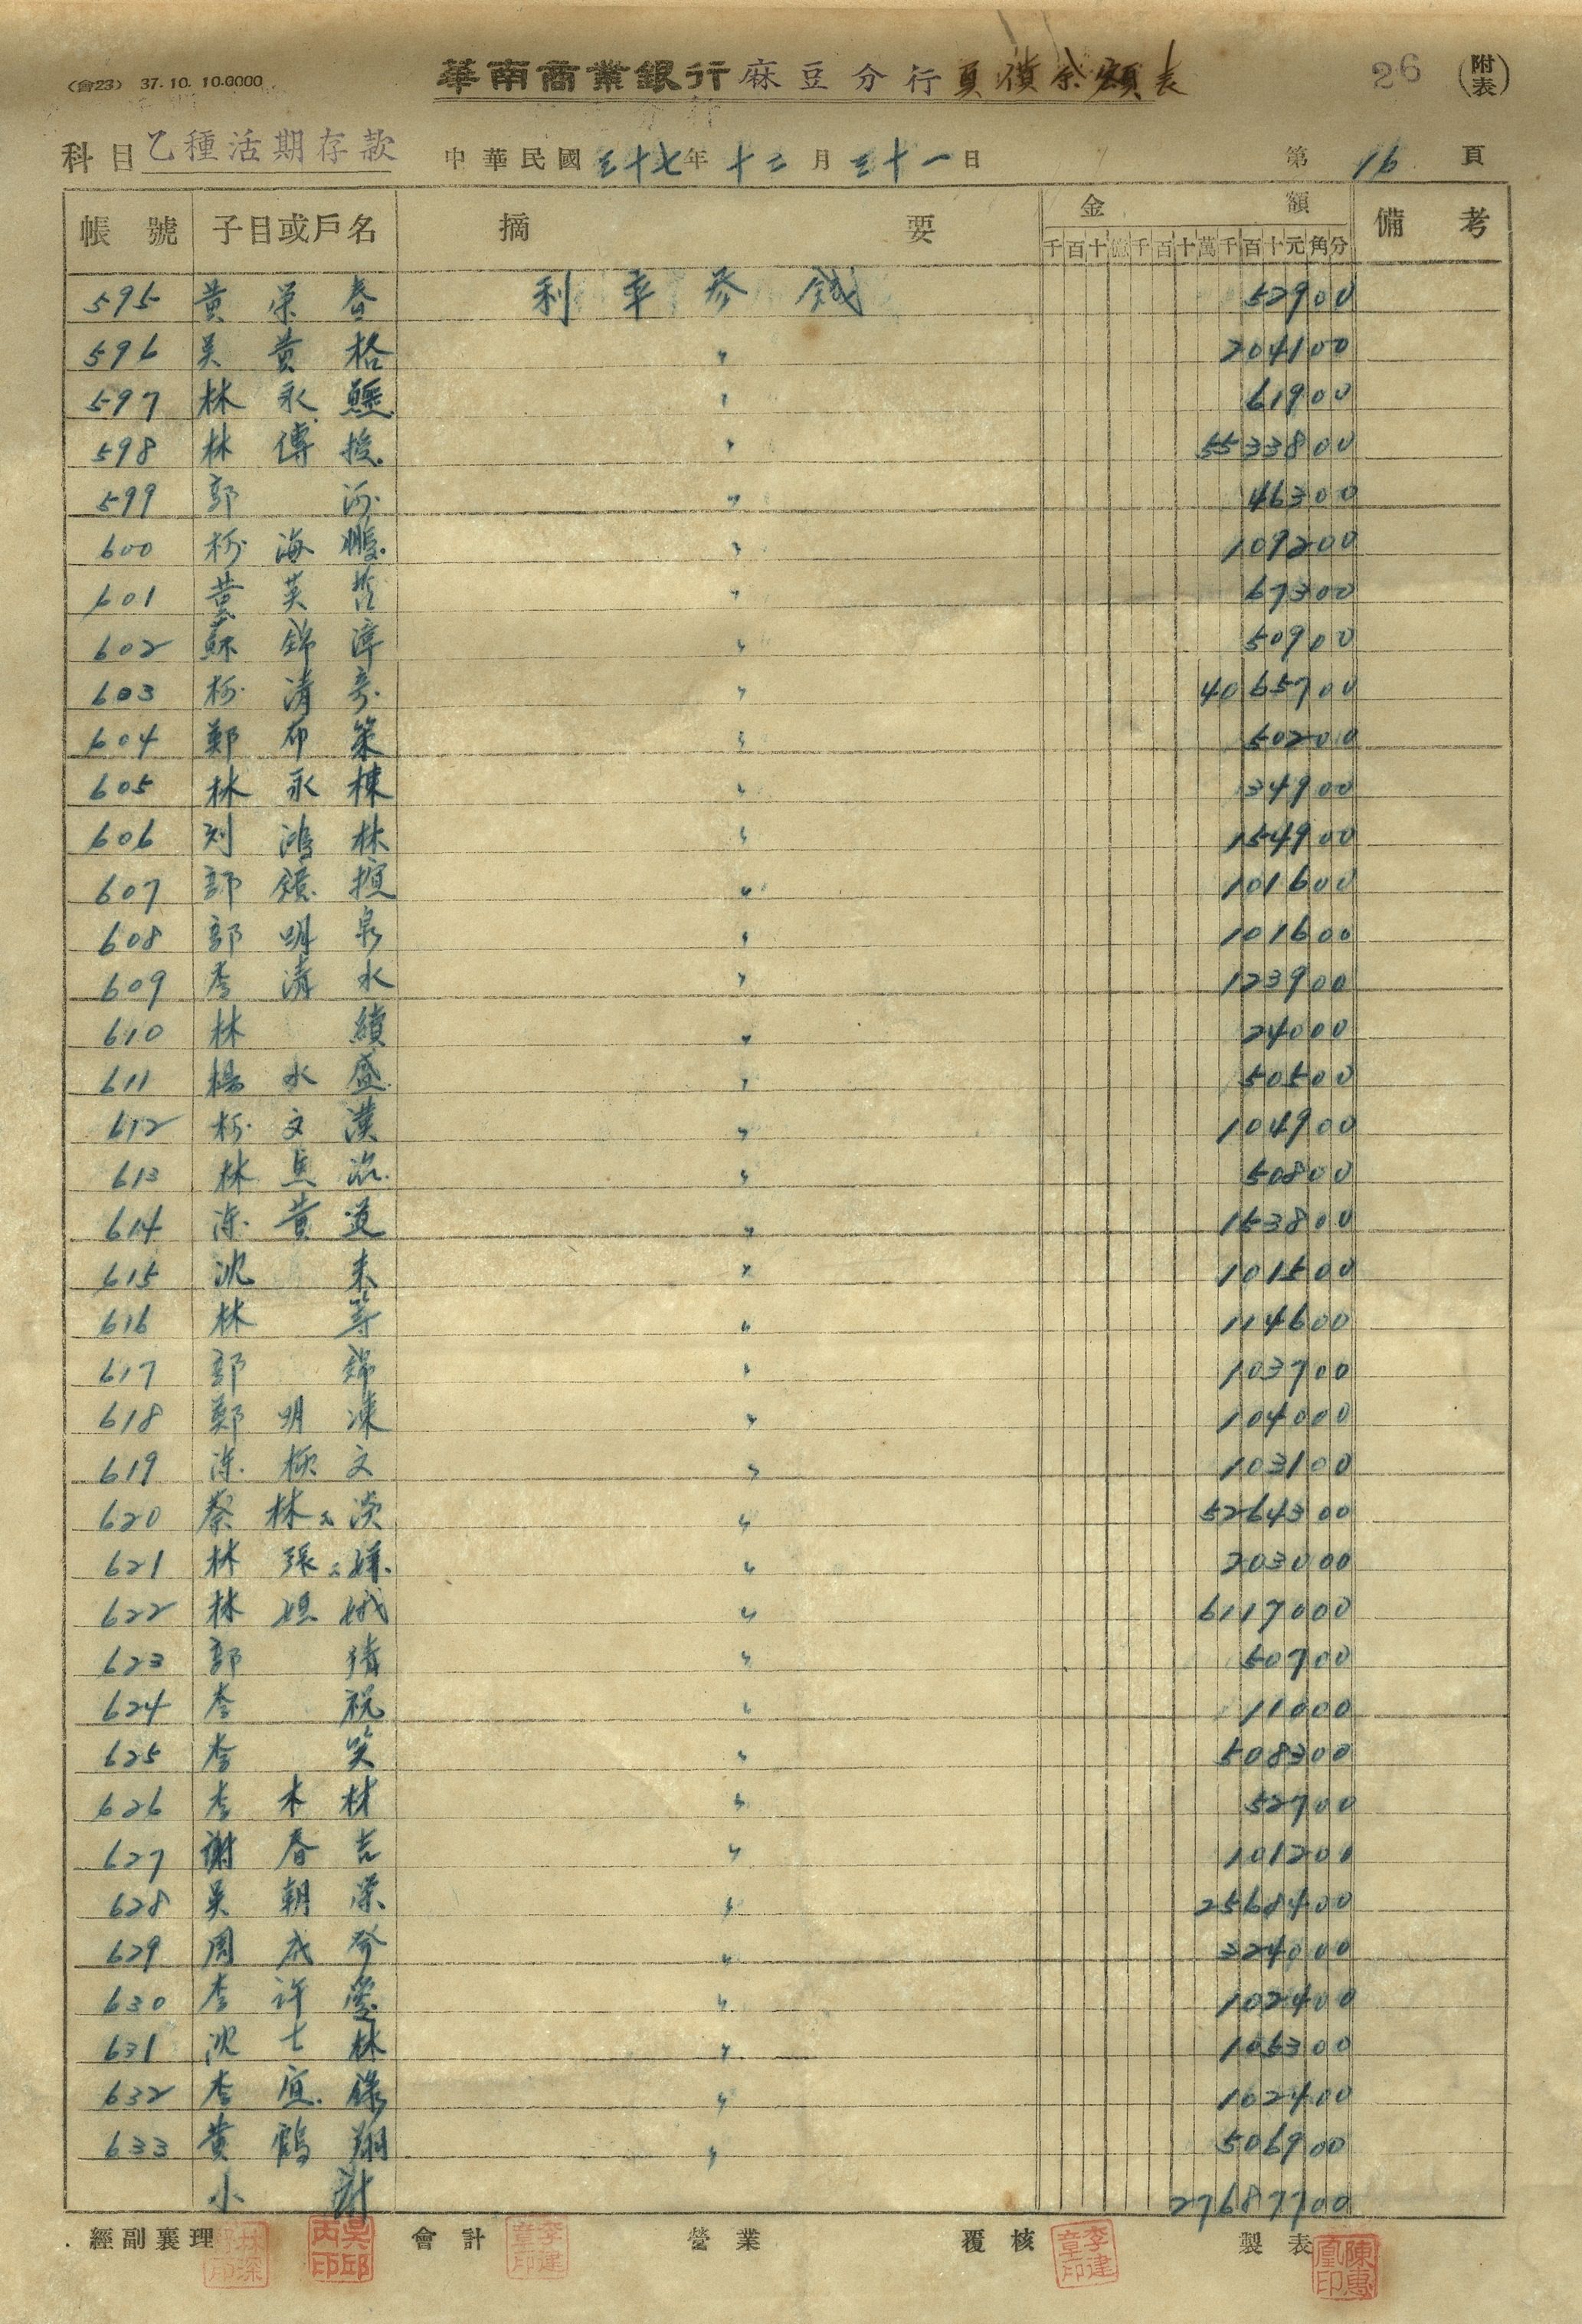 (會23) 37. 10. 10.0000
華南商業銀行 麻豆分行 負債余額表
26 (附表)
科目 乙種活期存款 中華民國 三十七 年 十二 月 三十一 日 第 16 頁
帳號 子目或戶名 摘要 金額 備考
千百十億千百十萬千百十元角分
595 黃榮春 利率參錢 52900
596 吳黃格 〃 204100
597 林永 〃 61900
598 林傳 〃 5533800
599 郭河 〃 46300
600 柯海鵬 〃 109200
601 英哲 〃 67300
602 蘇錦 〃 50900
603 柯清 〃 4065700
604 鄭布策 〃 50200
605 林永棟 〃 34900
606 刘鴻林 〃 154900
607 郭 〃 101600
608 郭明泉 〃 101600
609 李清水 〃 123900
610 林續 〃 24000
611 楊水盛 〃 50500
612 柯文漢 〃 104900
613 林 〃 50800
614 陳黃 〃 153800
615 沈來 〃 101500
616 林等 〃 114600
617 郭錦 〃 103700
618 鄭明 〃 104000
619 陳極文 〃 103100
620 蔡林氏 〃 5264300
621 林張氏 〃 203000
622 林娥 〃 6117000
623 郭 〃 50700
624 李祝 〃 11000
625 李笑 〃 508300
626 李木材 〃 52700
627 謝春吉 〃 101200
628 吳朝榮 〃 2568400
629 周成發 〃 324000
630 李許 〃 102400
631 沈士林 〃 106300
632 李 〃 102400
633 黃鶴翔 〃 506900
小計 27687700
經副襄理 會計 營業 覆核 製表
吳邱丙印 李建章印 李建章印 陳惠凰印